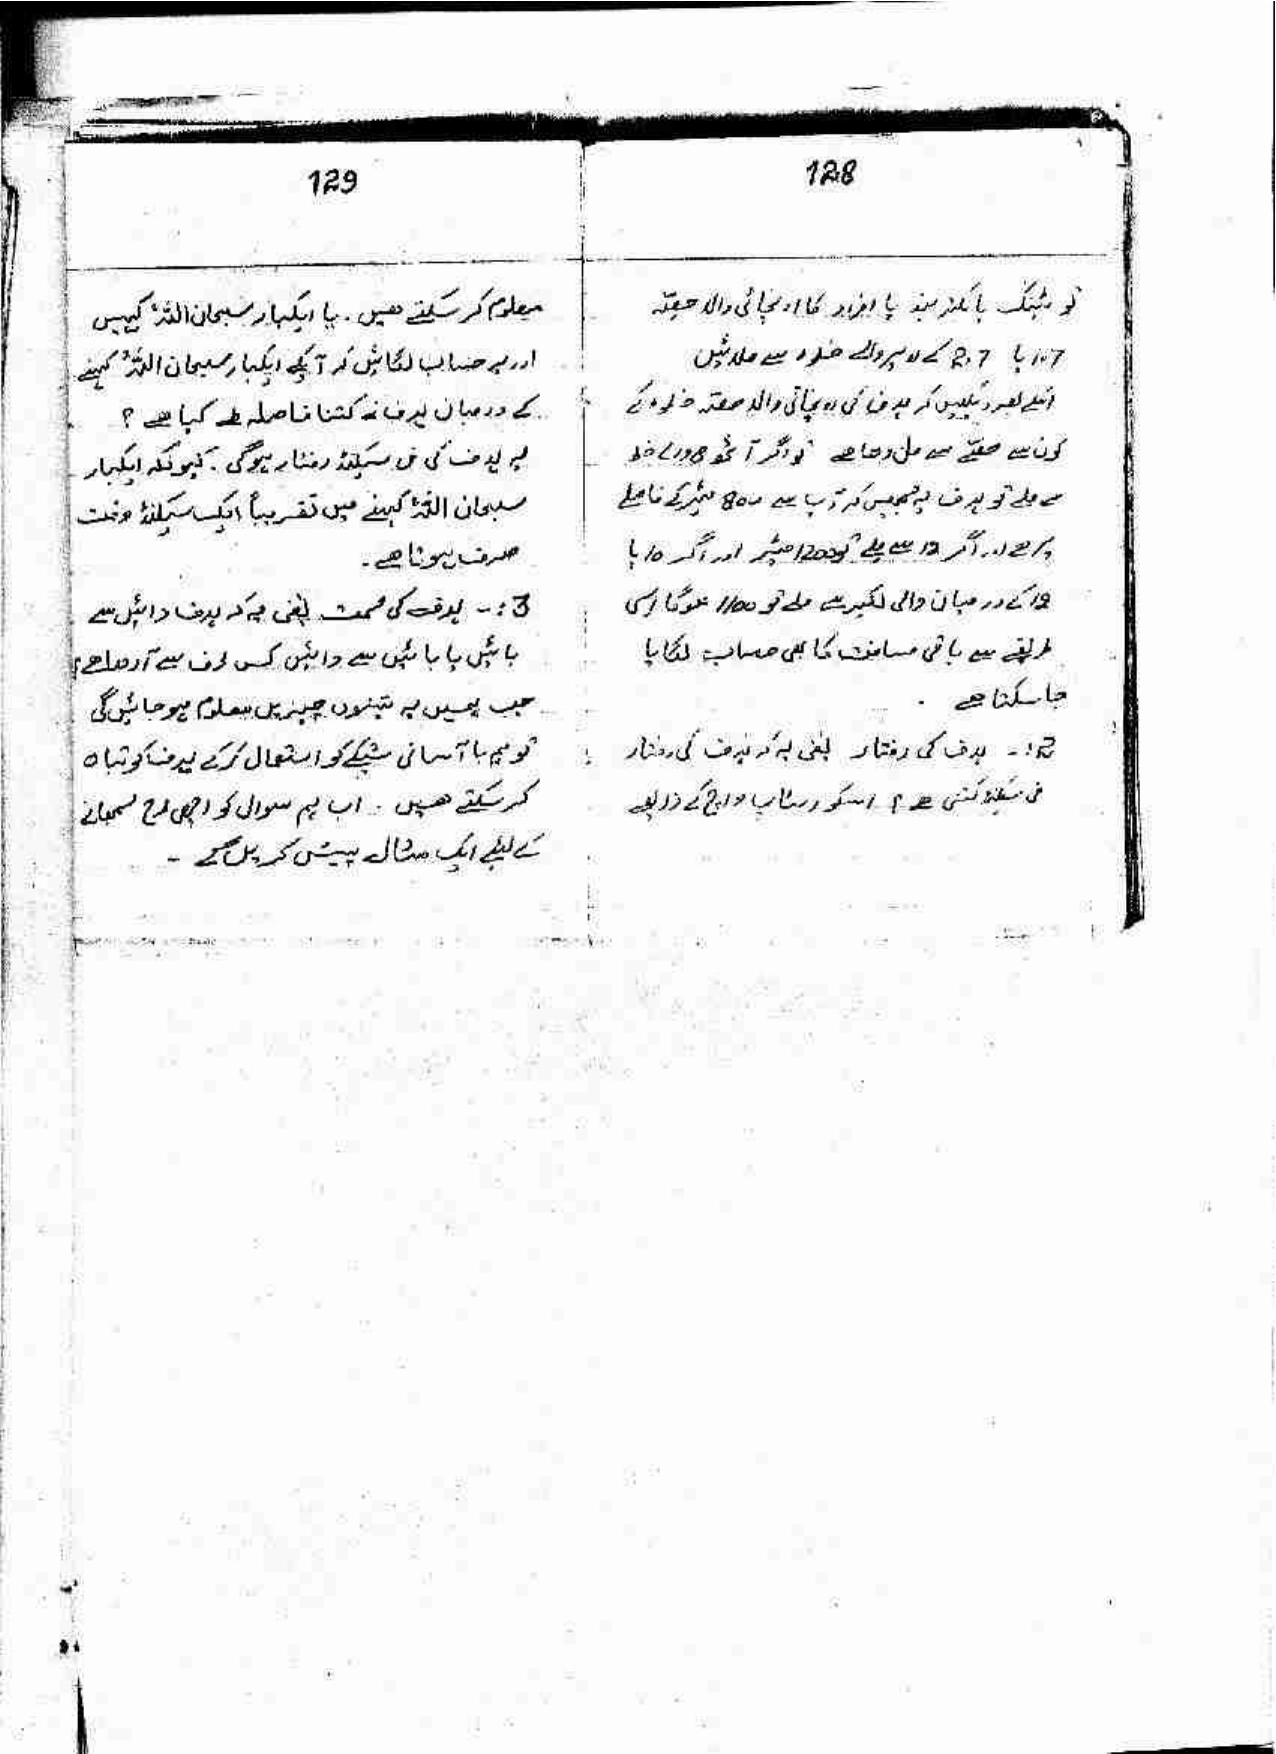 128
تو ٹینک یا بکتر بند یا افراد کا اونچائی والا حصّہ
1.7 یا 2.7 کے اوپر والے خط سے ملائیں
اسکے بعد دیکھیں کہ ہدف کی اونچائی والا حصّہ خط کے
کون سے حصّے سے مل رہا ہے تو اگر 8 والے خط
سے ملے تو ہدف یہ سمجھیں کہ آپ سے 800 میٹر کے فاصلے
پر ہے اور اگر 12 سے ملے تو 1200 میٹر اور اگر 10 یا
12 کے درمیان والی لکیر سے ملے تو 1100 ہوگا اسی
طریقے سے باقی مسافت کا بھی حساب لگایا
جا سکتا ہے .
2:- ہدف کی رفتار یعنی یہ کہ ہدف کی رفتار
فی سیکنڈ کتنی ہے ؟ اسکو سٹاپ واچ کے ذریعے
129
معلوم کر سکتے ھیں . یا ایکبار سبحان اللہ کہیں
اور یہ حساب لگائیں کہ آپکے ایکبار سبحان اللہ کہنے
کے درمیان ہدف نے کتنا فاصلہ طے کیا ہے ؟
یہ ہدف کی فی سیکنڈ رفتار ہوگی . کیونکہ ایکبار
سبحان اللہ کہنے میں تقریباً ایک سیکنڈ وقت
صرف ہوتا ہے .
3:- ہدف کی سمت یعنی یہ کہ ہدف دائیں سے
بائیں یا بائیں سے دائیں کس طرف سے آ رھا ھے ؟
جب ہمیں یہ تینوں چیزیں معلوم ہو جائیں گی
تو ہم با آسانی شبکے کو استعمال کرکے ہدف کو تباہ
کر سکتے ھیں . اب ہم سوال کو اچھی طرح سمجھانے
کے لیئے ایک مثال پیش کریں گے -